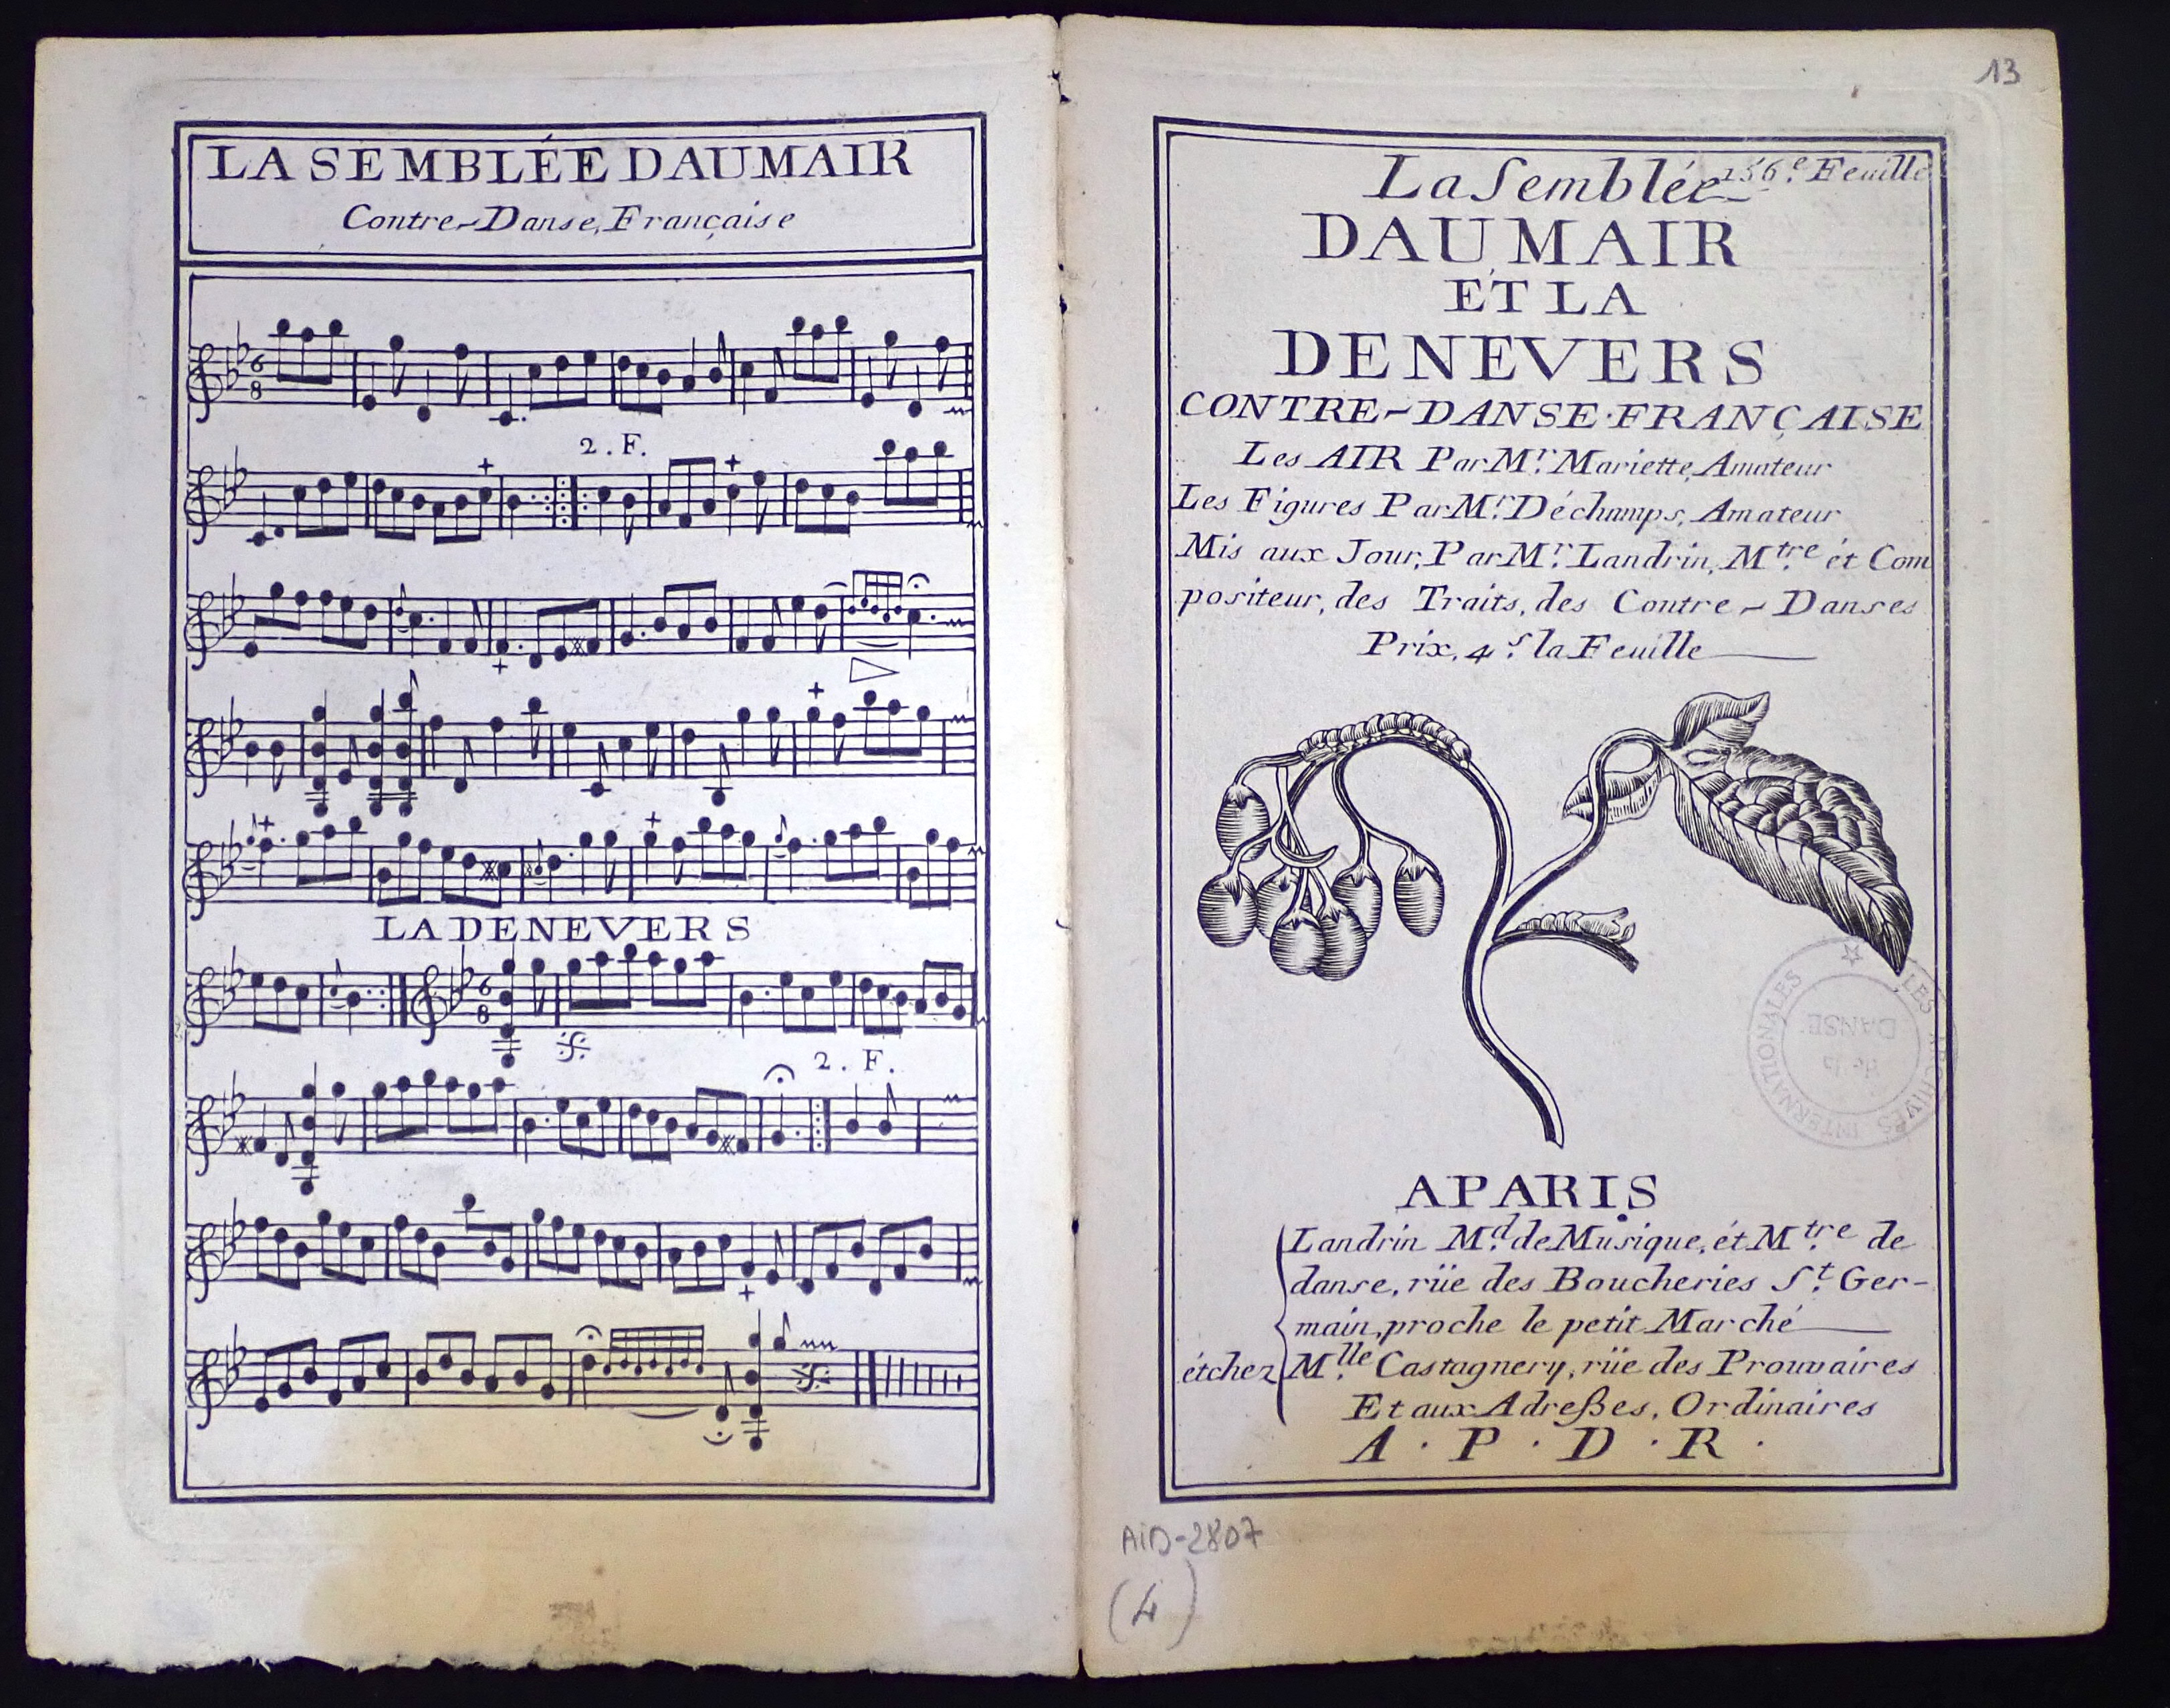 LA SEMBLÉE DAUMAIR
Contre-Danse, Française
6
8
2. F.
LA DENEVERS
6
8
2. F.
13
La Semblée 156.e Feuille
DAUMAIR
ET LA
DENEVERS
CONTRE-DANSE FRANÇAISE
Les AIR Par Mr. Mariette, Amateur
Les Figures Par Mr. Déchamps, Amateur
Mis aux Jour, Par Mr. Landrin, Mtre. ét Com
positeur, des Traits, des Contre-Danses
Prix, 4 s. la Feuille
LES ARCHIVES INTERNATIONALES
de la
DANSE
A PARIS
Landrin Md. de Musique, ét Mtre. de
danse, rüe des Boucheries St. Ger-
main, proche le petit Marché
ét chez Mlle. Castagnery, rüe des Prouvaires
Et aux Adreßes, Ordinaires
A . P . D . R .
AID-2807
(4)